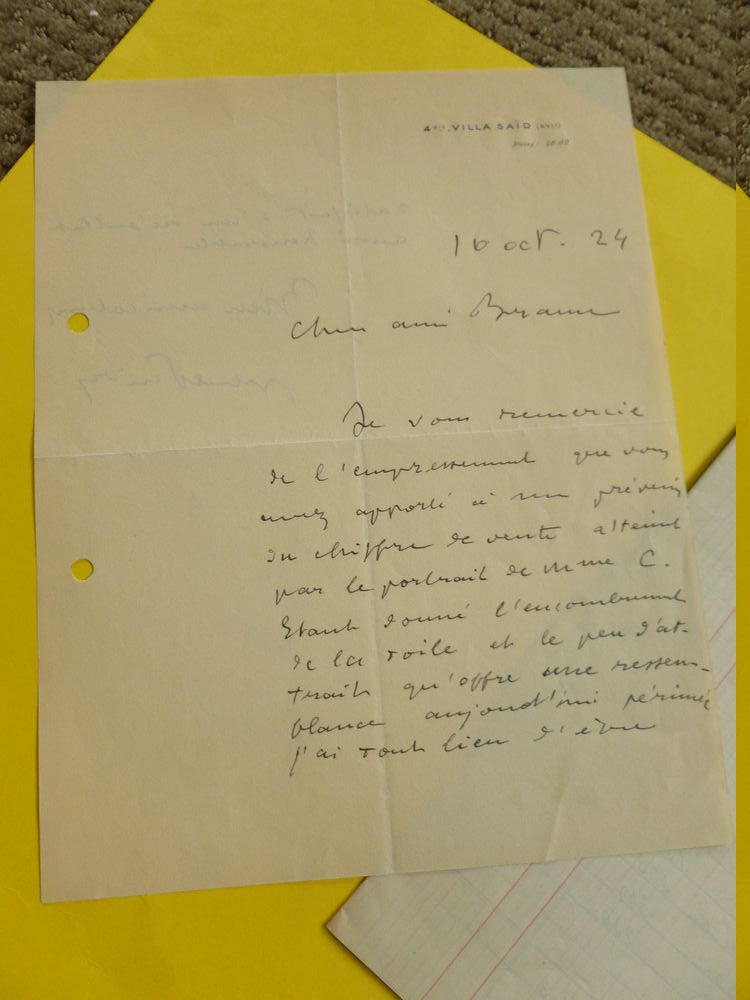 4ᵗᵉʳ, VILLA SAÏD (XVIᵉ)
Passy :
16 oct. 24
Cher ami Brame
Je vous remercie
de l'empressement que vous
avez apporté à me prévenir
du chiffre de vente atteint
par le portrait de Mme C.
Etant donné l'encombrement
de la toile et le peu d'at-
trait qu'offre une ressem-
blance aujourd'hui périmée
j'ai tout lieu d'être
satisfait d'un résultat
aussi honorable